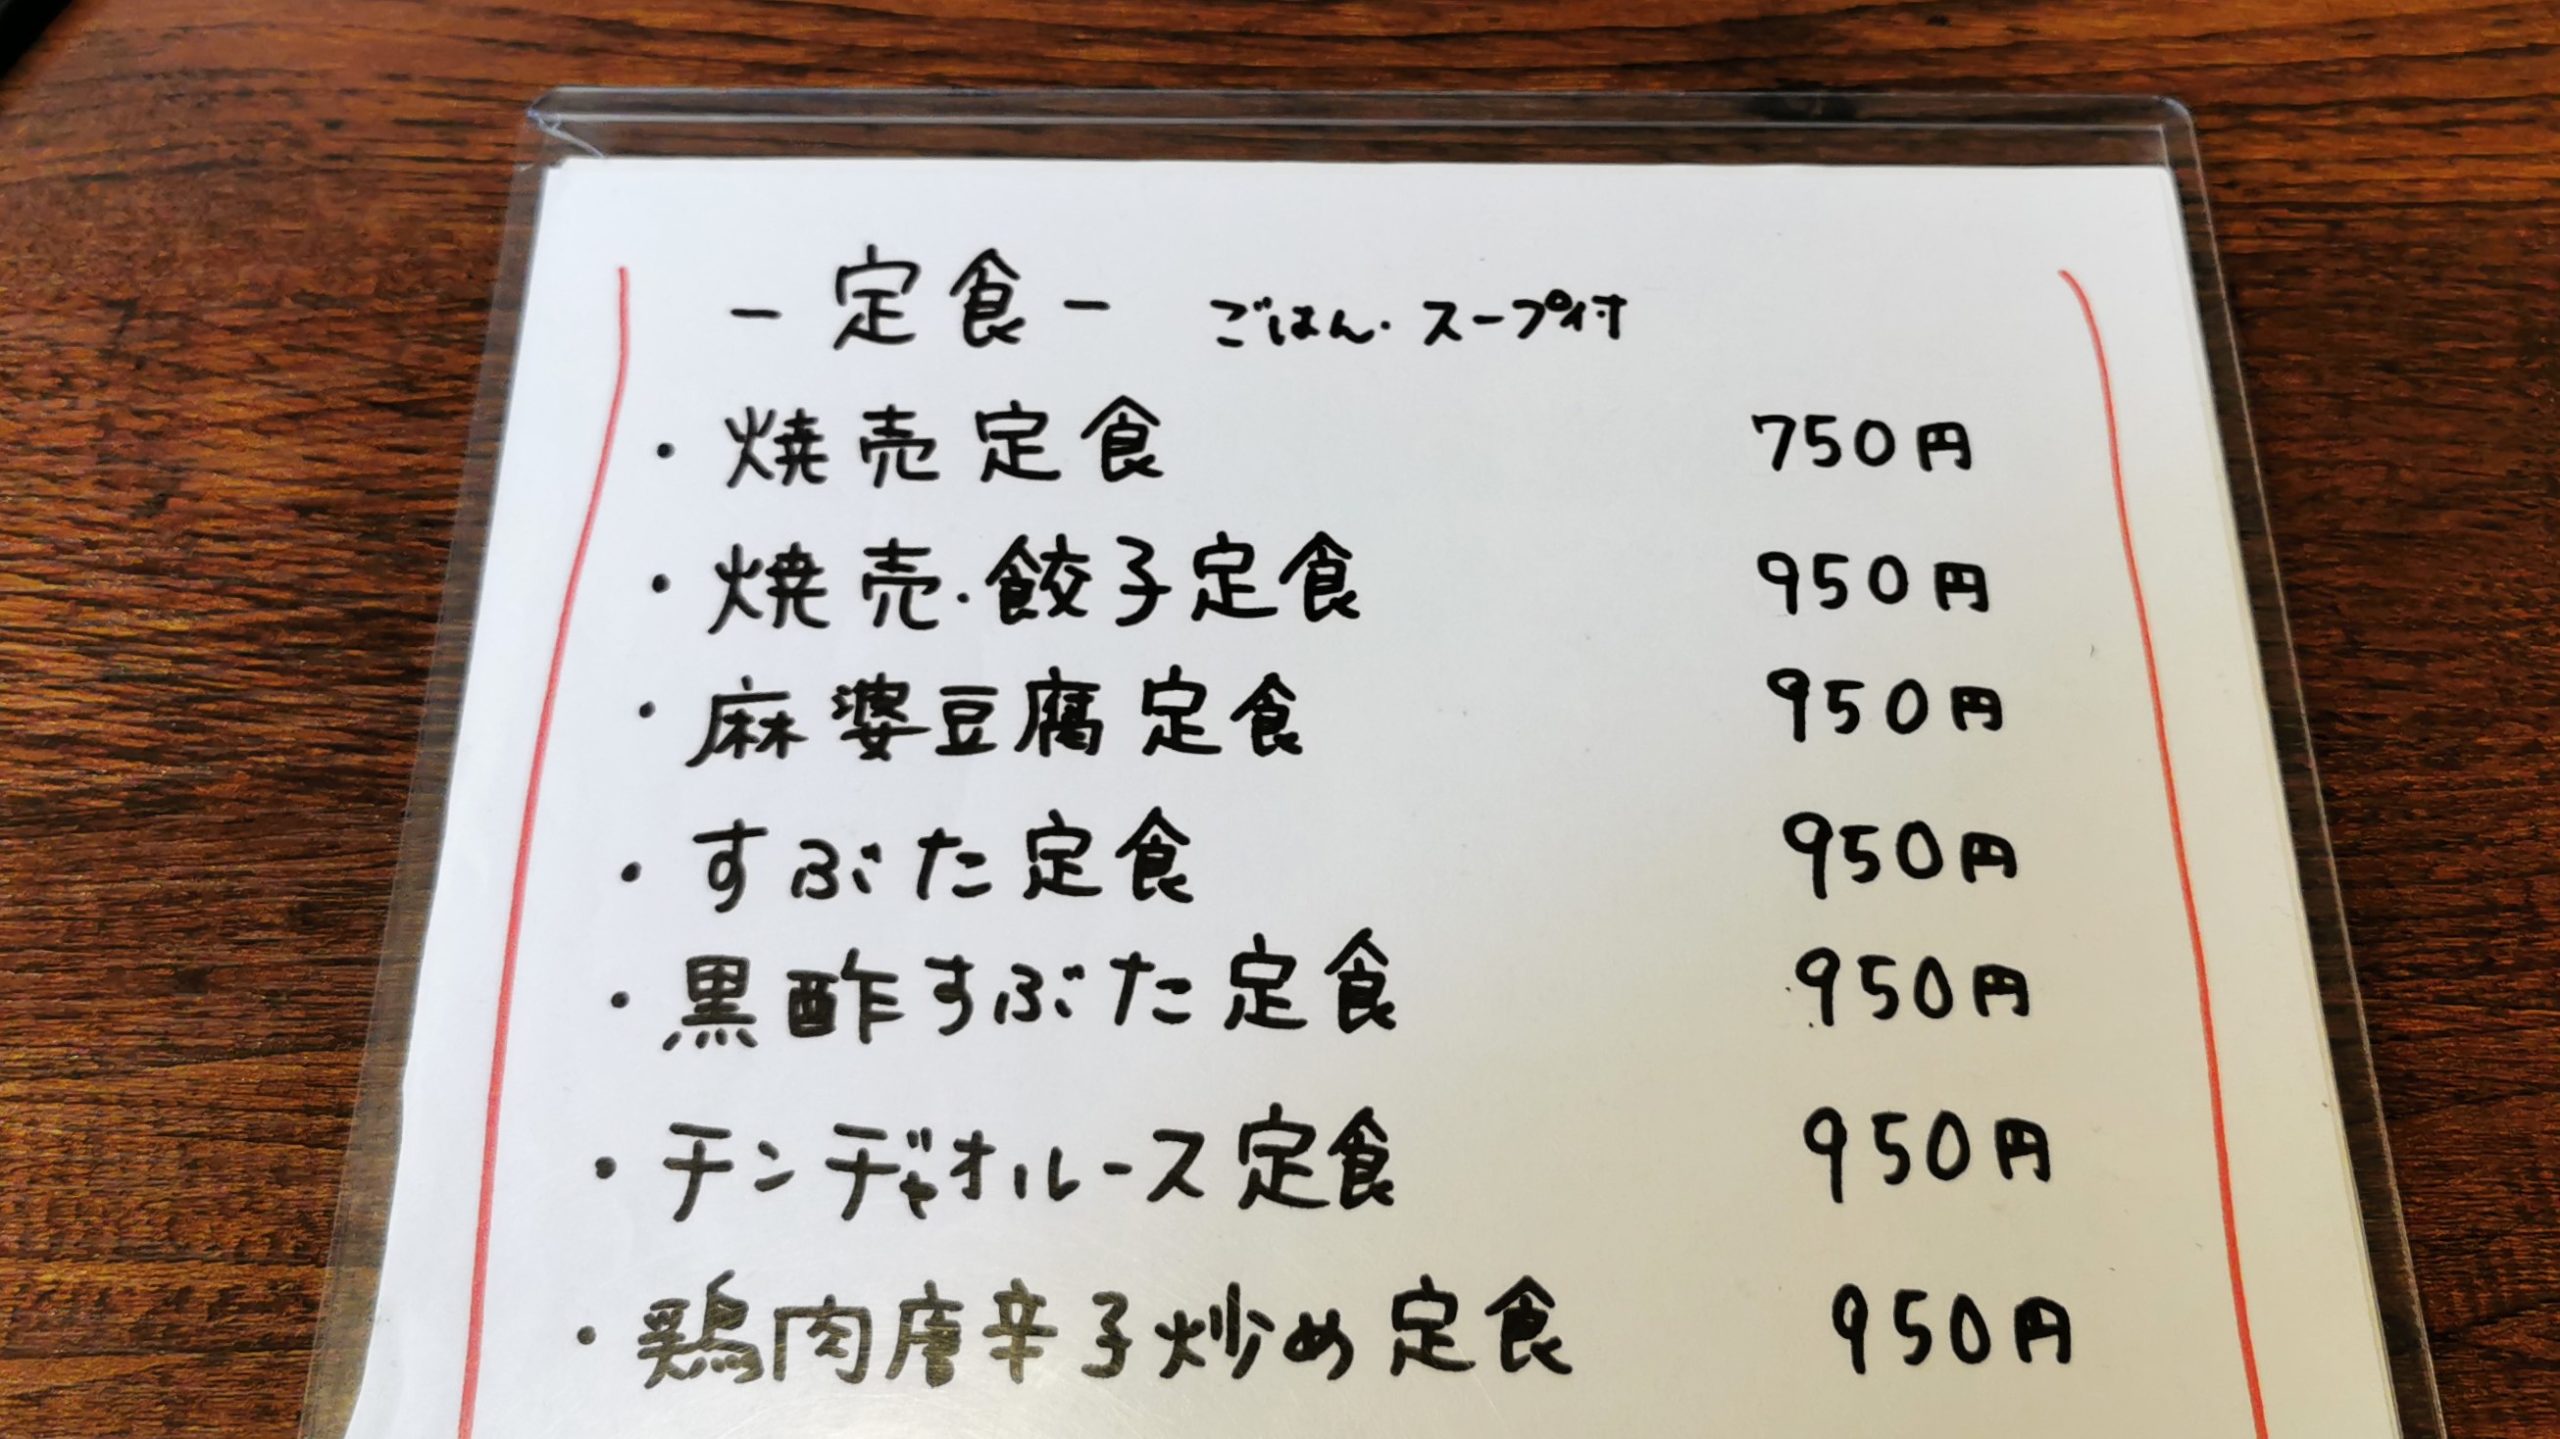 －定食－ ごはん・スープ付
・焼売定食 750円
・焼売・餃子定食 950円
・麻婆豆腐定食 950円
・すぶた定食 950円
・黒酢すぶた定食 950円
・チンヂャオルース定食 950円
・鶏肉唐辛子炒め定食 950円